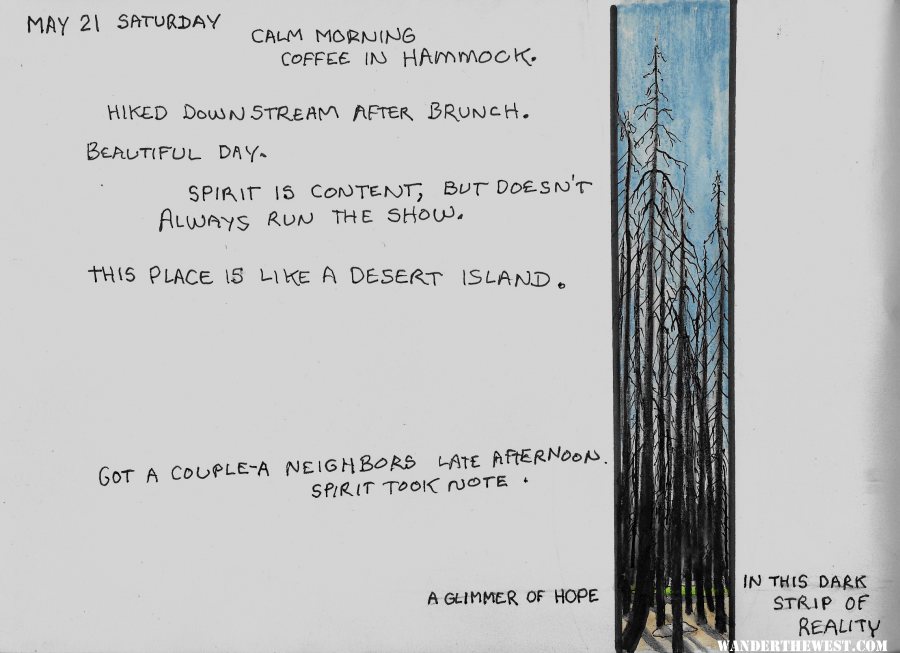 MAY 21 SATURDAY
CALM MORNING
COFFEE IN HAMMOCK.
HIKED DOWNSTREAM AFTER BRUNCH.
BEAUTIFUL DAY.
SPIRIT IS CONTENT, BUT DOESN'T
ALWAYS RUN THE SHOW.
THIS PLACE IS LIKE A DESERT ISLAND.
GOT A COUPLE-A NEIGHBORS LATE AFTERNOON.
SPIRIT TOOK NOTE.
A GLIMMER OF HOPE
IN THIS DARK
STRIP OF
REALITY
WANDERTHEWEST.COM